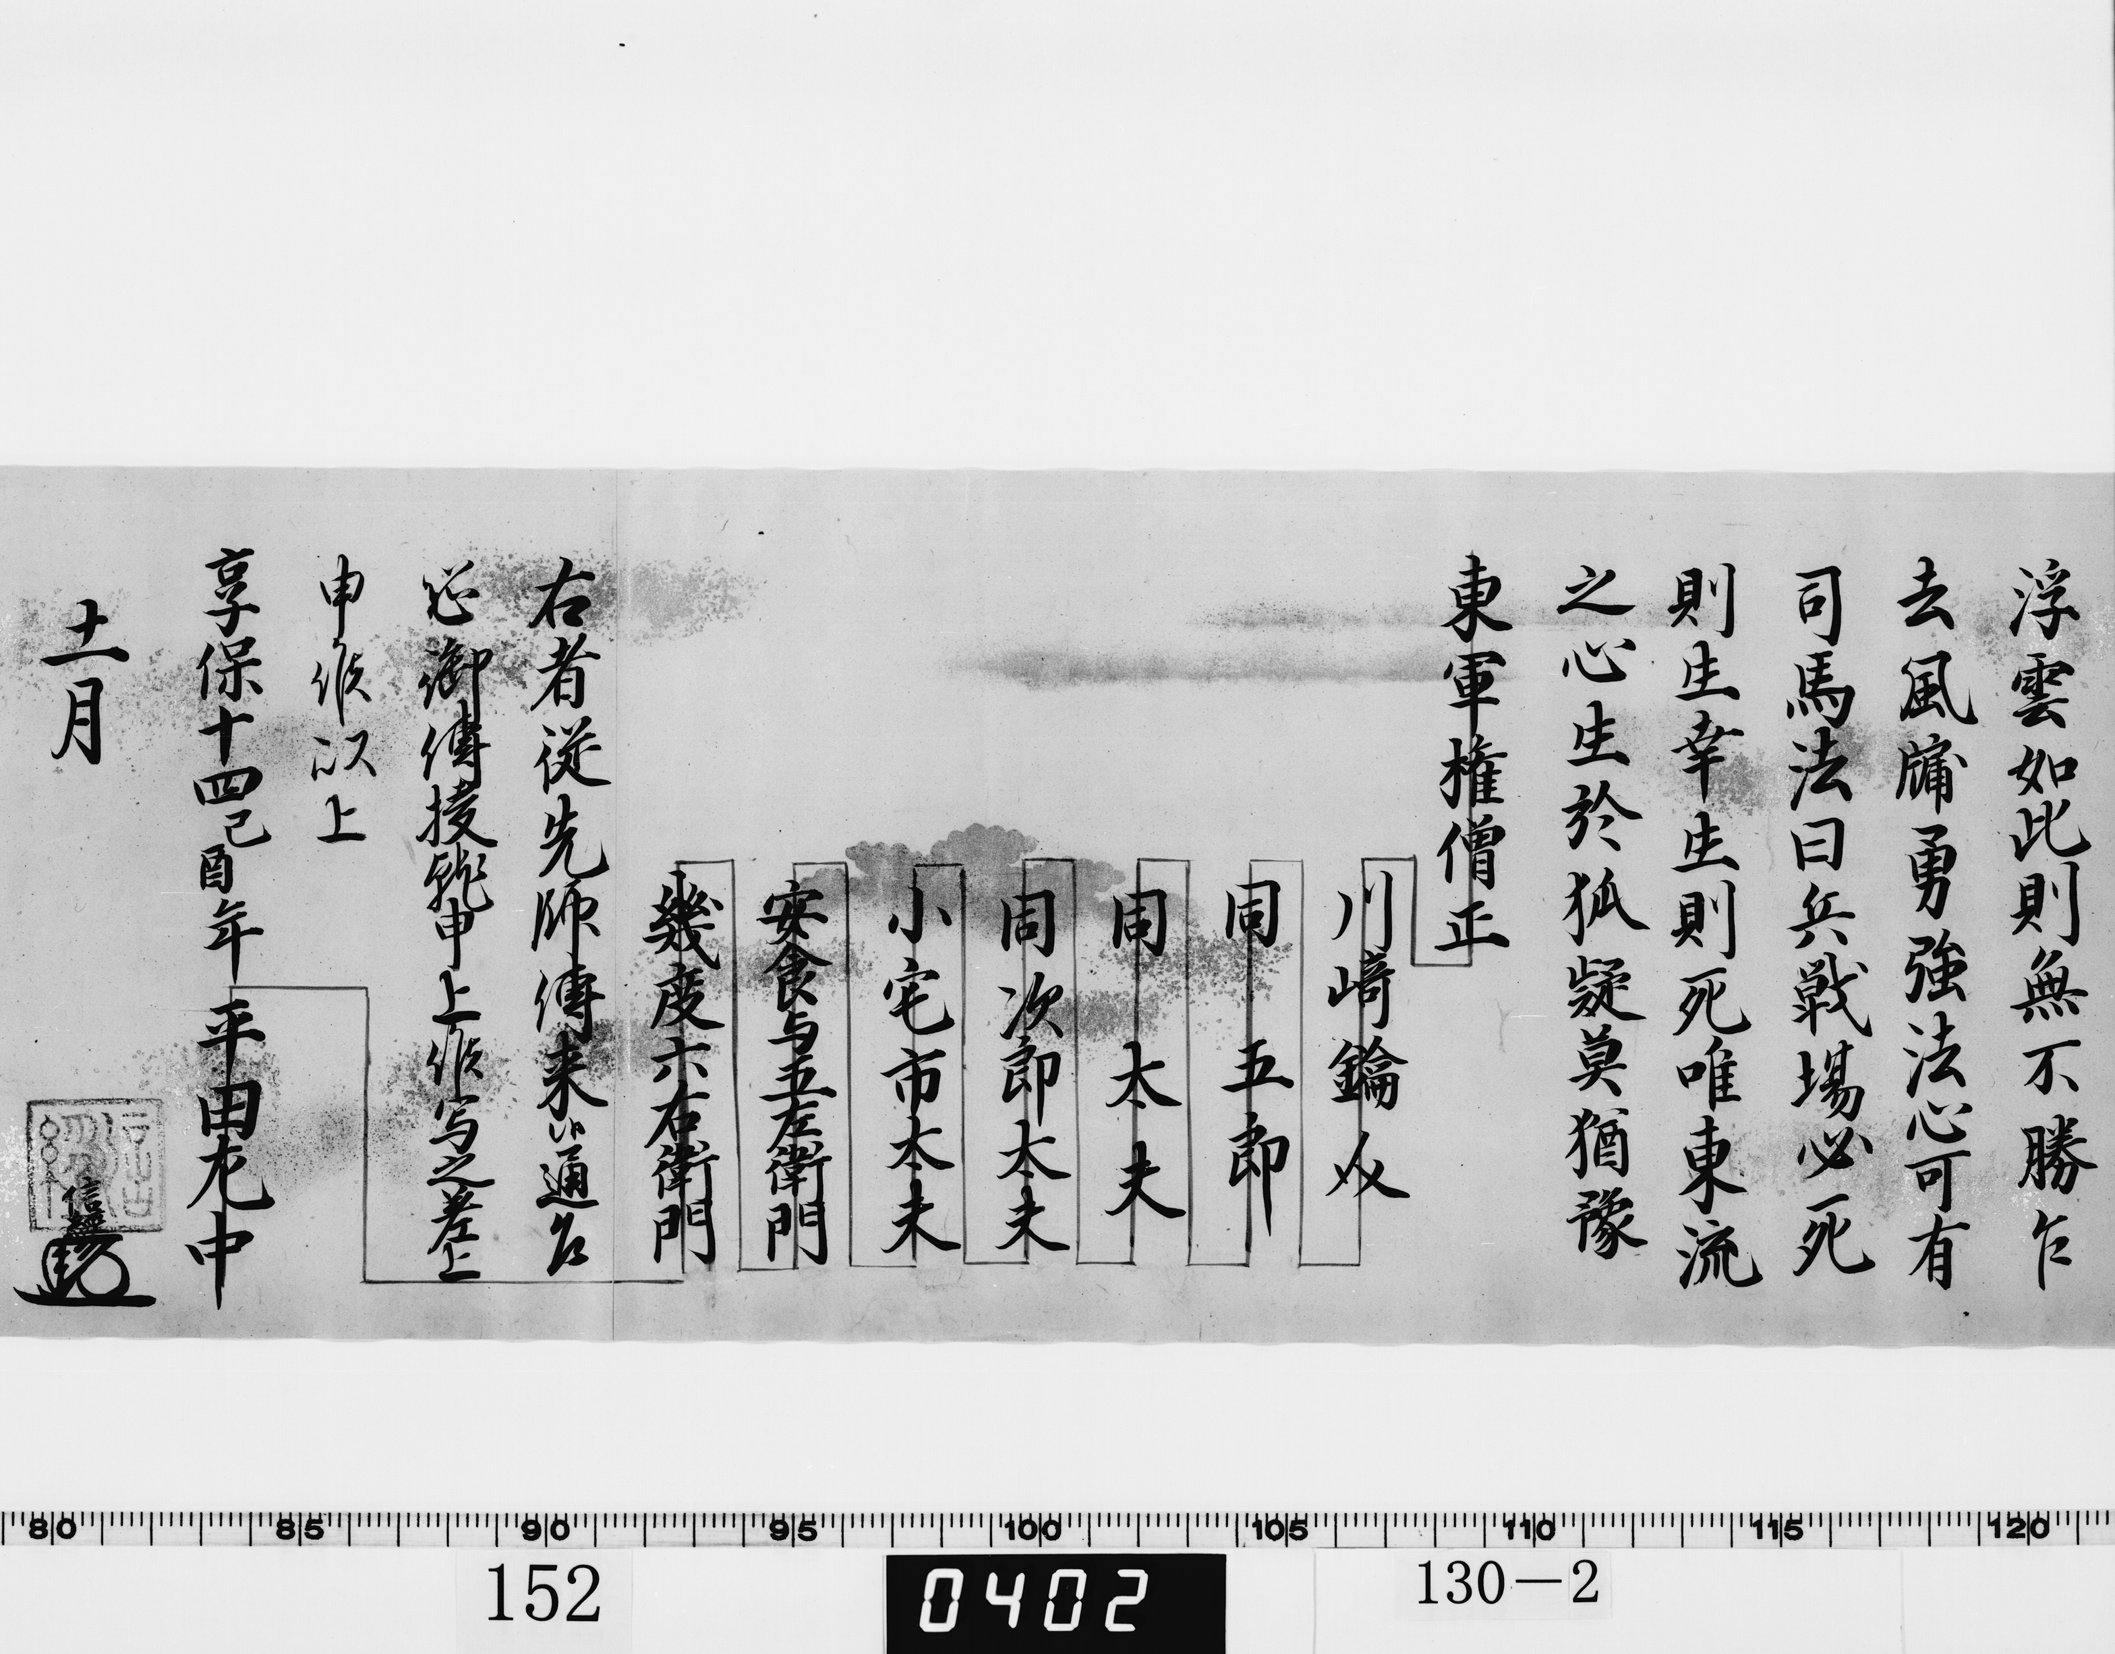 浮雲如此則無不勝乍
去風牖勇強法心可有
司馬法曰兵戦場必死
則生幸生則死唯東流
之心生於狐疑莫猶豫
東軍権僧正
川﨑鑰
同五郎
同太夫
同次郎太夫
小宅市太夫
安食与五左衛門
幾度六右衛門
右者従先師傳来之通
御傳授申上候写之差上
申候以上
享保十四己酉年 平田左中
十一月 信
80 85 90 95 100 105 110 115 120
152
0402
130-2